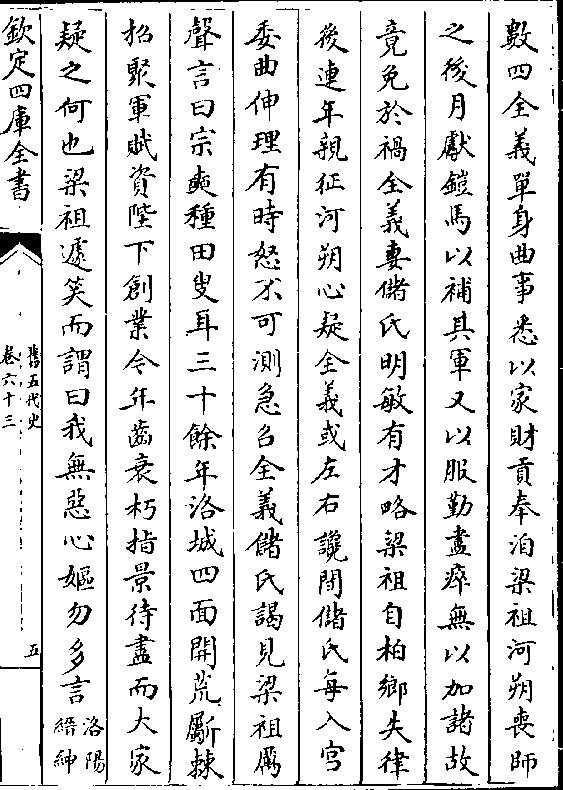 數四全義單身曲事悉以家財貢奉洎梁祖河朔喪師
之後月獻鎧馬以補其軍又以服勤盡瘁無以加諸故
竟免於禍全義妻儲氏明敏有才略梁祖自柏鄉失律
後連年親征河朔心疑全義或左右讒間儲氏每入宮
委曲伸理有時怒不可測急召全義儲氏謁見梁祖厲
聲言曰宗奭種田叟耳三十餘年洛城四面開荒斸棘
招聚軍賦資陛下創業今年齒衰朽指景待盡而大家
疑之何也梁祖遽笑而謂曰我無惡心嫗勿多言
洛陽
縉紳
欽定四庫全書
舊五代史
卷六十三
五